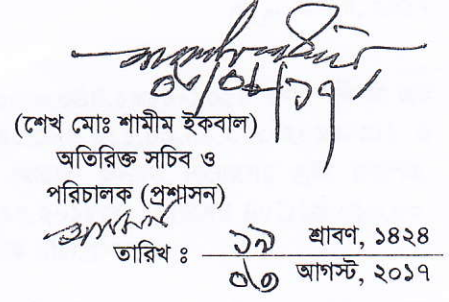 ০৩/০৮/১৭
(শেখ মোঃ শামীম ইকবাল)
অতিরিক্ত সচিব ও
পরিচালক (প্রশাসন)
তারিখ ঃ ১৯ শ্রাবণ, ১৪২৪
০৩ আগস্ট, ২০১৭